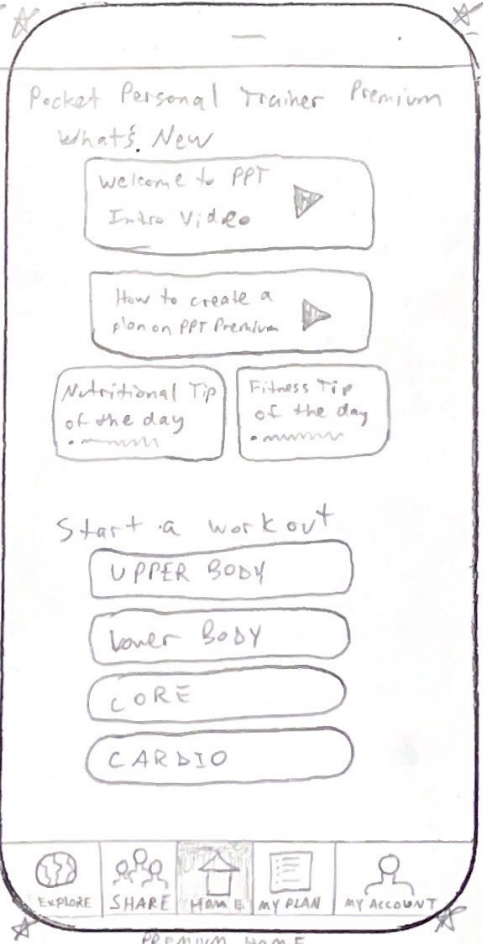 Pocket Personal Trainer Premium
What's New
Welcome to PPT
Intro Video
How to create a
plan on PPT Premium
Nutritional Tip
of the day
Fitness Tip
of the day
Start a workout
UPPER BODY
Lower BODY
CORE
CARDIO
EXPLORE
SHARE
HOME
MY PLAN
MY ACCOUNT
PREMIUM HOME